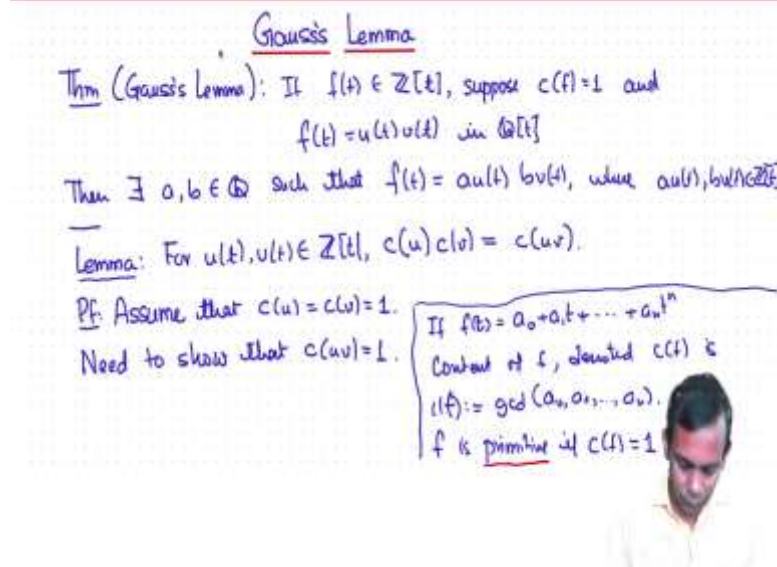 Gauss's Lemma
Thm (Gauss's Lemma): If f(t) ∈ ℤ[t], suppose c(f)=1 and
f(t) = u(t)v(t) in ℚ[t]
Then ∃ a,b ∈ ℚ such that f(t) = au(t) bv(t), where au(t), bv(t) ∈ ℤ[t]
Lemma: For u(t), v(t) ∈ ℤ[t], c(u)c(v) = c(uv).
Pf: Assume that c(u) = c(v) = 1.
Need to show that c(uv)=1.
If f(t) = a₀+a₁t+ ··· + aₙtⁿ
Content of f, denoted c(f) is
c(f) := gcd(a₀, a₁, ..., aₙ).
f is primitive if c(f) = 1